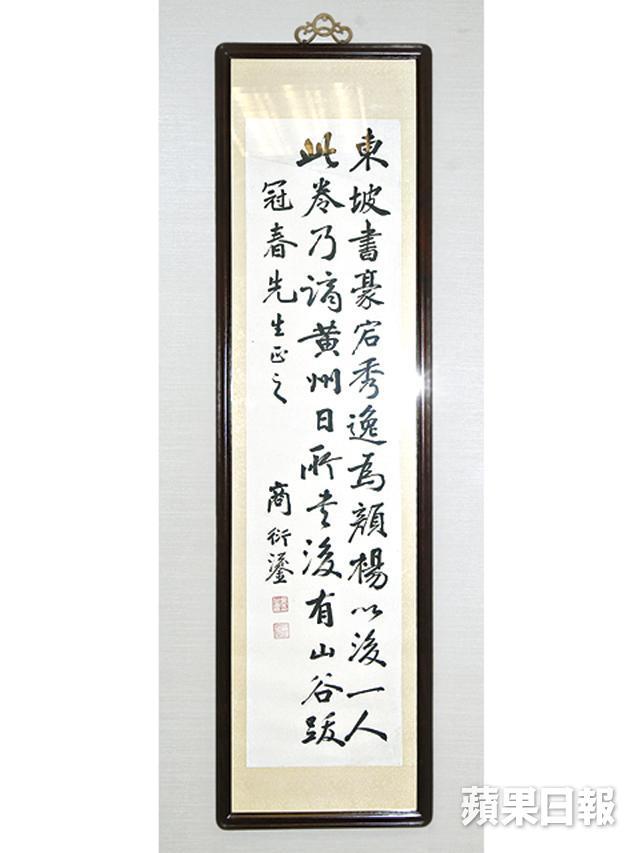 東坡書豪宕秀逸為顏楊以後一人
此卷乃謫黃州日所書後有山谷跋
冠春先生正之
商衍鎏
蘋果日報